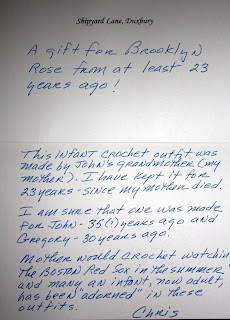 Shipyard Lane, Duxbury
A gift for Brooklyn
Rose from at least 23
years ago!
This infant crochet outfit was
made by John's grandmother (my
mother). I have kept it for
23 years - since my mother died.
I am sure that one was made
for John - 35(!) years ago and
Gregory - 30 years ago.
Mother would crochet watchin
the Boston Red Sox in the summer
and many an infant, now adult,
has been "adorned" in these
outfits.
Chris